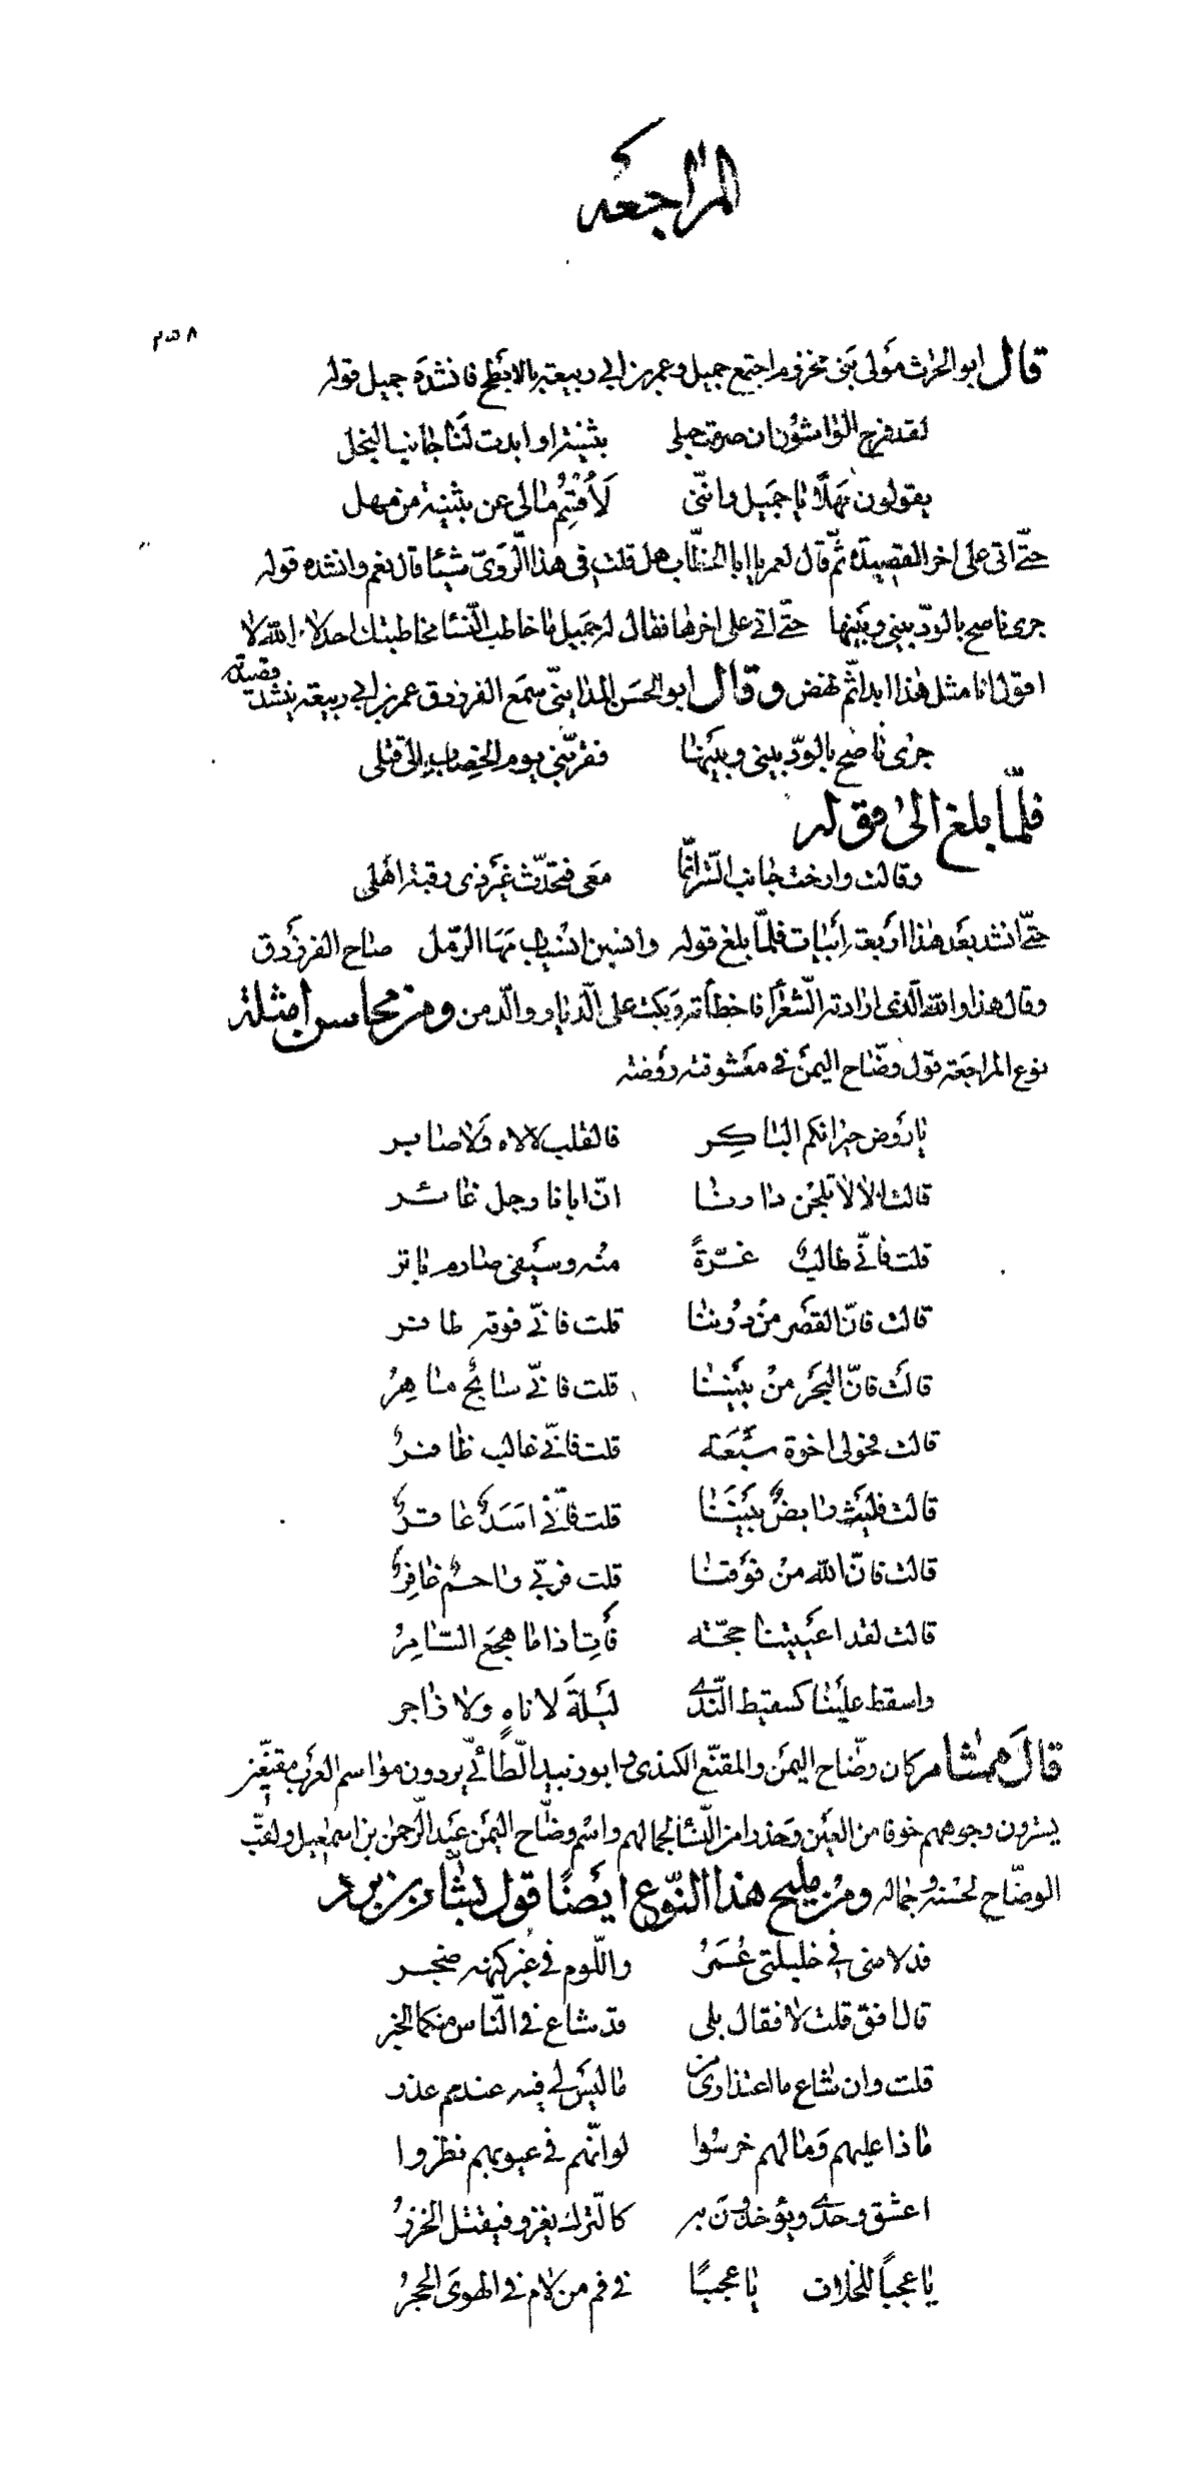 المراجعه
قال ابو الحرث مولى بنى مخزوم اجتمع جميل وعمر بن ابى ربيعة بالابطح فانشده جميل قوله
لقد فرح الواشون ان صرمت حبلى بثينة او ابدت لنا جانب البخل
يقولون مهلا يا جميل واننى لأقسم مالى عن بثينة من مهل
حتى اتى على اخر القصيدة ثم قال لعمر يا ابا الخطاب هل قلت فى هذا الروى شيئا قال نعم وانشده قوله
جرى ناصح بالود بينى وبينها حتى اتى على اخرها فقال له جميل ما خاطب النسا مخاطبتك احد لا والله لا
اقول انا مثل هذا ابدا ثم نهض وقال ابو الحسن المداينى سمع الفرزدق عمر بن ابى ربيعة ينشد قصيدته
جرى ناصح بالود بينى وبينها فقربنى يوم الخصاب الى قتلى
فلما بلغ الى قوله
وقالت وارخت جانب الستر انما معى فتحدث غير ذى رقبة اهلى
حتى انشد بعد هذا اربعة ابيات فلما بلغ قوله وانسين انسياب مها الرمل صاح الفرزدق
وقال هذا والله الذى ارادته الشعرأ فاخطأته وبكت على الديار والدمن ومن محاسن امثلة
نوع المراجعة قول وضاح اليمن فى معشوقته روضة
يا روض جيرانكم الباكر فالقلب لا لاه ولا صابر
قالت الا لا تلجن دارنا ان ابانا رجل غائر
قلت فانى طالب غرة منه وسيفى صارم باتر
قالت فان القصر من دوننا قلت فانى فوقه ظافر
قالت فان البحر من بيننا قلت فانى سابح ماهر
قالت فحولى اخوة سبعة قلت فانى غالب ظافر
قالت فليث رابض بيننا قلت فانى اسد عاقر
قالت فان الله من فوقنا قلت فربى راحم غافر
قالت لقد اعييتنا حجة فأت اذا ما هجع السامر
واسقط علينا كسقيط الندى ليلة لا ناه ولا زاجر
قال هشام كان وضاح اليمن والمقنع الكندى وابو زبيد الطائى يردون مواسم العرب مقنعين
يسترون وجوههم خوفا من العين وحذرا من النسأ لجمالهم واسم وضاح اليمن عبد الرحمن بن اسمعيل ولقب
الوضاح لحسنه وجماله ومن مليح هذا النوع ايضا قول بشار بن برد
قد لامنى فى خليلتى عمر واللوم فى غير كنهه ضجر
قال افق قلت لا فقال بلى قد شاع فى الناس منكما الخبر
قلت وان شاع ما اعتذارى من ما ليس لى فيه عندهم عذر
ماذا عليهم وما لهم خرسوا لو انهم فى عيوبهم نظروا
اعشق وحدى ويؤخذون به كالترك يغزو فيقتل الخزر
يا عجبا للخلاف يا عجبا فى فم من لام فى الهوى الحجر